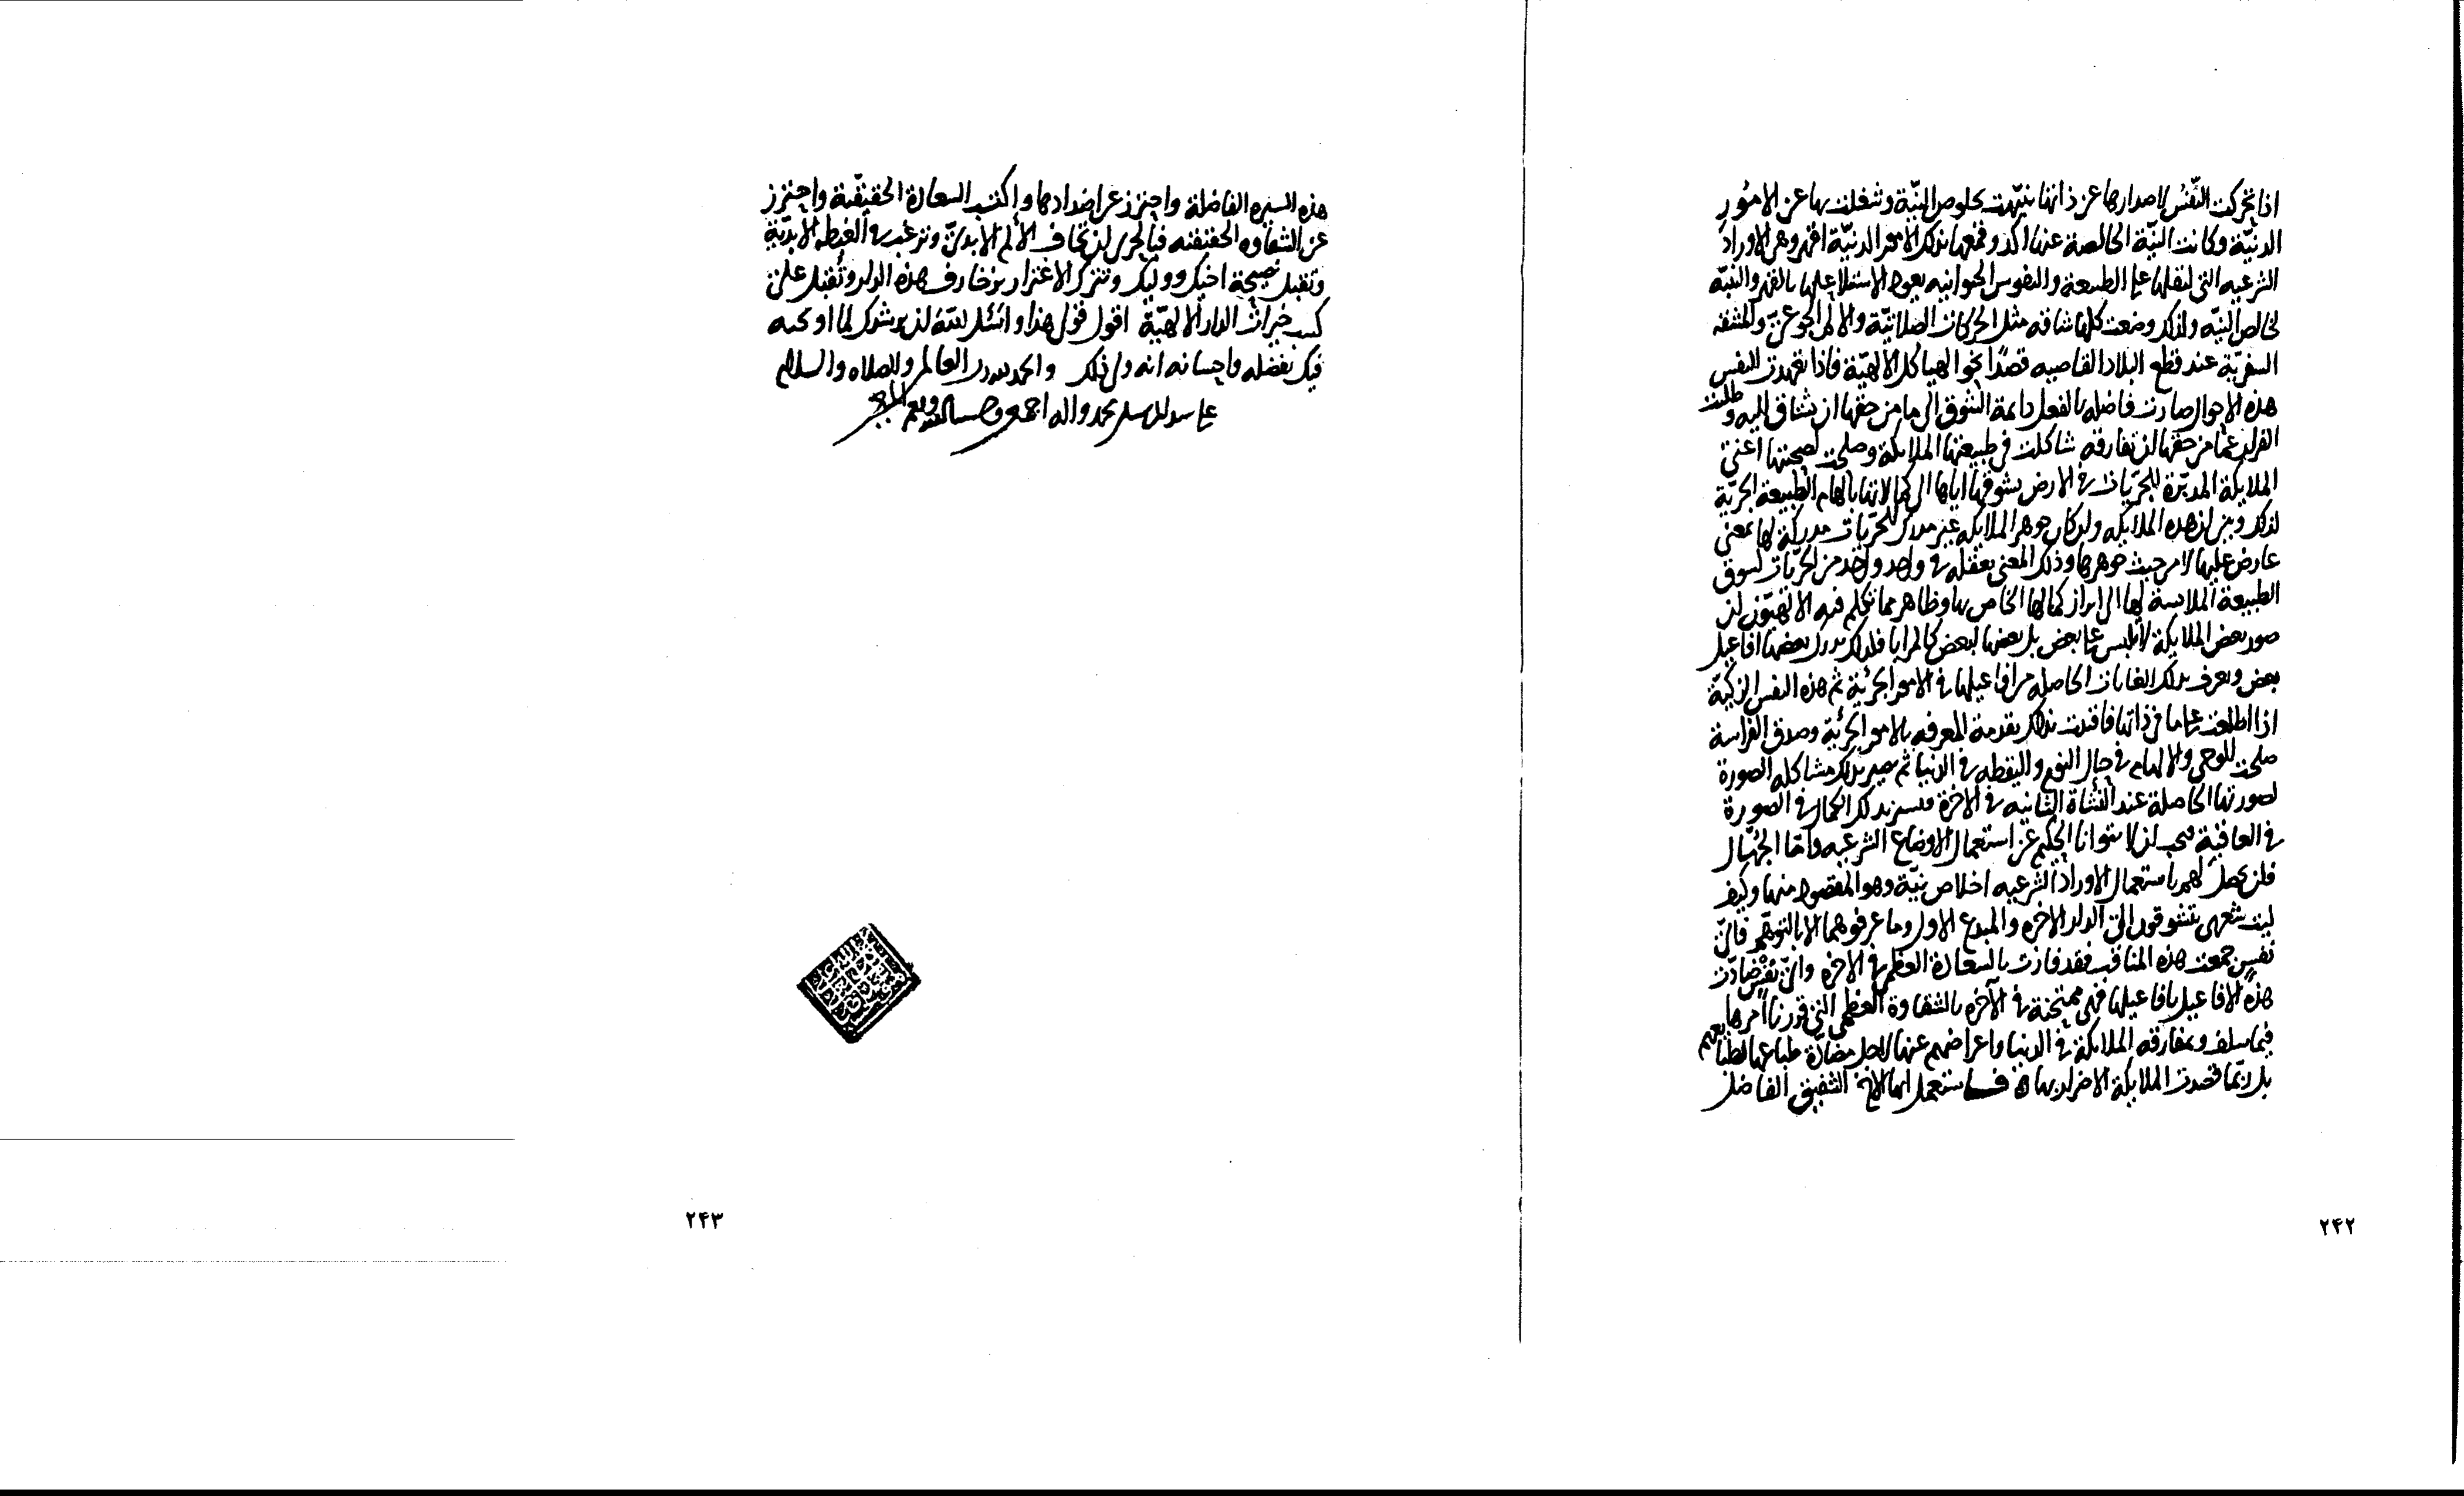 اذا تحركت النفس لاصدارها عن ذاتها تنبهت بخلوص النية وشغلت بها عن الامور
الدنية وكانت النية الخالصة عنها اكد وقمعها بذلك الامور الدنية اقهر وهي الاوراد
الشرعية التي لثقلها على الطبيعة والنفوس الحيوانية يعود الاستعلا عليها بالقهر والتنبه
لخالص النيه ولذلك وضعت كلها شاقه مثل الحركات الصلاتية والالم الجوعي والمشقه
السفرية عند قطع البلاد القاصيه قصدا نحو الهياكل الالهية فاذا تعهدت النفس
هذه الاحوال صارت فاضله بالفعل دايمة الشوق الى ما من حقها ان يشتاق اليه وطلبت
الفرار عما من حقها ان تفارقه شاكلت في طبيعتها الملايكة وصلحت لصحبتها اعني
الملايكة المدبرة للجزيات في الارض بشوقها اياها الى كمالاتها بالهام الطبيعة الجزية
لذلك وبين ان هذه الملايكه وان كان جوهر الملايكه غير مدرك للجزيات مدركة لها بمعنى
عارض عليها لا من حيث جوهرها وذلك المعنى بعقله في واحد واحد من الجزيات لسوق
الطبيعة الملابسة لها الى ابراز كمالها الخاص بها وظاهر مما تكلم فيه الالهيون ان
صور بعض الملايكة لا تلتبس على بعض بل بعضها لبعض كالمرايا فلذلك يدرك بعضها افاعيل
بعض ويعرف بذلك الغايات الحاصله من افاعيلها في الامور الجزئية ثم هذه النفس الزكية
اذا اطلعت على ما في ذاتها فاقتنت بذلك تقدمة المعرفه بالامور الجزئية وصدق الفراسة
صلحت للوحي والالهام في حال النوم واليقظه في الدنيا ثم يصير بذلك مشاكله الصورة
لصورتها الحاصلة عند النشاة الثانيه في الاخرة فتستر بذلك الكمال في الصورة
في العاقبة فيجب ان لا يتوانا الحكيم عن استعمال الاوضاع الشرعيه واما الجهال
فلن يحصل لهم باستعمال الاوراد الشرعيه اخلاص نية وهو المقصود منها وكيف
ليت شعري يتشوقون الى الدار الاخره والمبدع الاول وما عرفوهما الا بالتوهم فاي
نفس جمعت هذه المناقب فقد فازت بالسعادة العظمى في الاخره واي نفس ضادت
هذه الافاعيل بافاعيلها فهي ممتحنة في الآخره بالشقاوة العظمى التي قررنا امرها
فيما سلف وبمفارقه الملايكة في الدنيا واعراضهم عنها لاجل مضادة طباعها لطباعهم
بل ربما قصدت الملايكة الاضرار بها فاستعمل ايها الاخ الشفيق الفاضل
٢٤٢
هذه السيره الفاضلة واحترز عن اضدادها واكتسب السعادة الحقيقية واحترز
عن الشقاوه الحقيقيه فبالحرى ان تخاف الألم الابدي وترغب في الغبطه الابدية
وتقبل نصيحة اخيك ووليك وتترك الاغترار بزخارف هذه الدار وتقبل على
كسب خيرات الدار الالهية اقول قولي هذا واسئل الله ان يرشدك لما اوجبه
فيك بفضله واحسانه انه ولي ذلك والحمد لله رب العالمين والصلاه والسلام
على سيد المرسلين محمد واله اجمعين وحسبنا الله ونعم المعين
٢٤٣